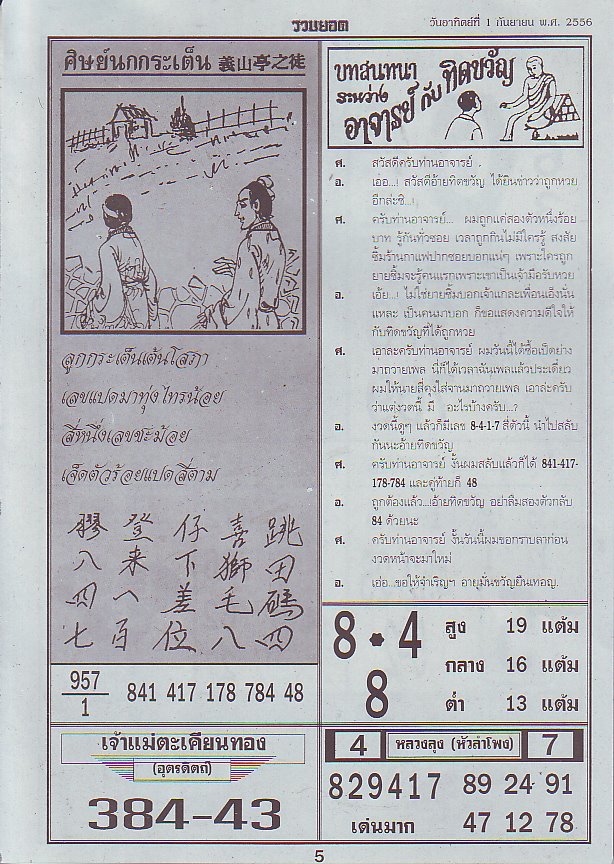 รวบยอด
วันอาทิตย์ที่ 1 กันยายน พ.ศ. 2556
ศิษย์นกกระเต็น 義山亭之徒
ลูกกระเต็นเต้นโลภา
เลขแปดมาทุ่งไทรน้อย
สี่หนึ่งเลขชะม้อย
เจ็ดตัวร้อยแปดสี่ตาม
膠 登 仔 喜 跳
八 来 下 獅 田
四 八 差 毛 碼
七 百 位 八 四
957
1
841 417 178 784 48
เจ้าแม่ตะเคียนทอง
(อุตรดิตถ์)
384-43
บทสนทนา
ระหว่าง
อาจารย์ กับ ทิดขวัญ
ศ. สวัสดีครับท่านอาจารย์
อ. เอ่อ...! สวัสดีอ้ายทิดขวัญ ได้ยินข่าวว่าถูกหวย
อีกล่ะซิ...!
ศ. ครับท่านอาจารย์... ผมถูกแค่สองตัวหนึ่งร้อย
บาท รู้กันทั่วซอย เวลาถูกกินไม่มีใครรู้ สงสัย
ซิ้มร้านกาแฟปากซอยบอกแน่ๆ เพราะใครถูก
ยายซิ้มจะรู้คนแรกเพราะเขาเป็นเจ้ามือรับหวย
อ. เอ้ย...! ไม่ใช่ยายซิ้มบอกเจ้าแกละเพื่อนเอ็งนั่น
แหละ เป็นคนมาบอก ก็ขอแสดงความดีใจให้
กับทิดขวัญที่ได้ถูกหวย
ศ. เอาล่ะครับท่านอาจารย์ ผมวันนี้ได้ซื้อเป็ดย่าง
มาถวายเพล นี่ก็ได้เวลาฉันเพลแล้วประเดี๋ยว
ผมให้นายสี่คุงใส่จานมาถวายเพล เอาล่ะครับ
ว่าแต่งวดนี้ มี อะไรบ้างครับ...?
อ. งวดนี้ดูๆ แล้วก็มีเลข 8-4-1-7 สี่ตัวนี้ นำไปสลับ
กันนะอ้ายทิดขวัญ
ศ. ครับท่านอาจารย์ งั้นผมสลับแล้วก็ได้ 841-417-
178-784 และคู่ท้ายก็ 48
อ. ถูกต้องแล้ว...!อ้ายทิดขวัญ อย่าลืมสองตัวกลับ
84 ด้วยนะ
ศ. ครับท่านอาจารย์ งั้นวันนี้ผมขอกราบลาก่อน
งวดหน้าจะมาใหม่
อ. เอ่อ...ขอให้จำเริญฯ อายุมั่นขวัญยืนเทอญ.
8 • 4
8
สูง 19 แต้ม
กลาง 16 แต้ม
ต่ำ 13 แต้ม
4 หลวงลุง (หัวลำโพง) 7
829417 89 24 91
เด่นมาก 47 12 78
5